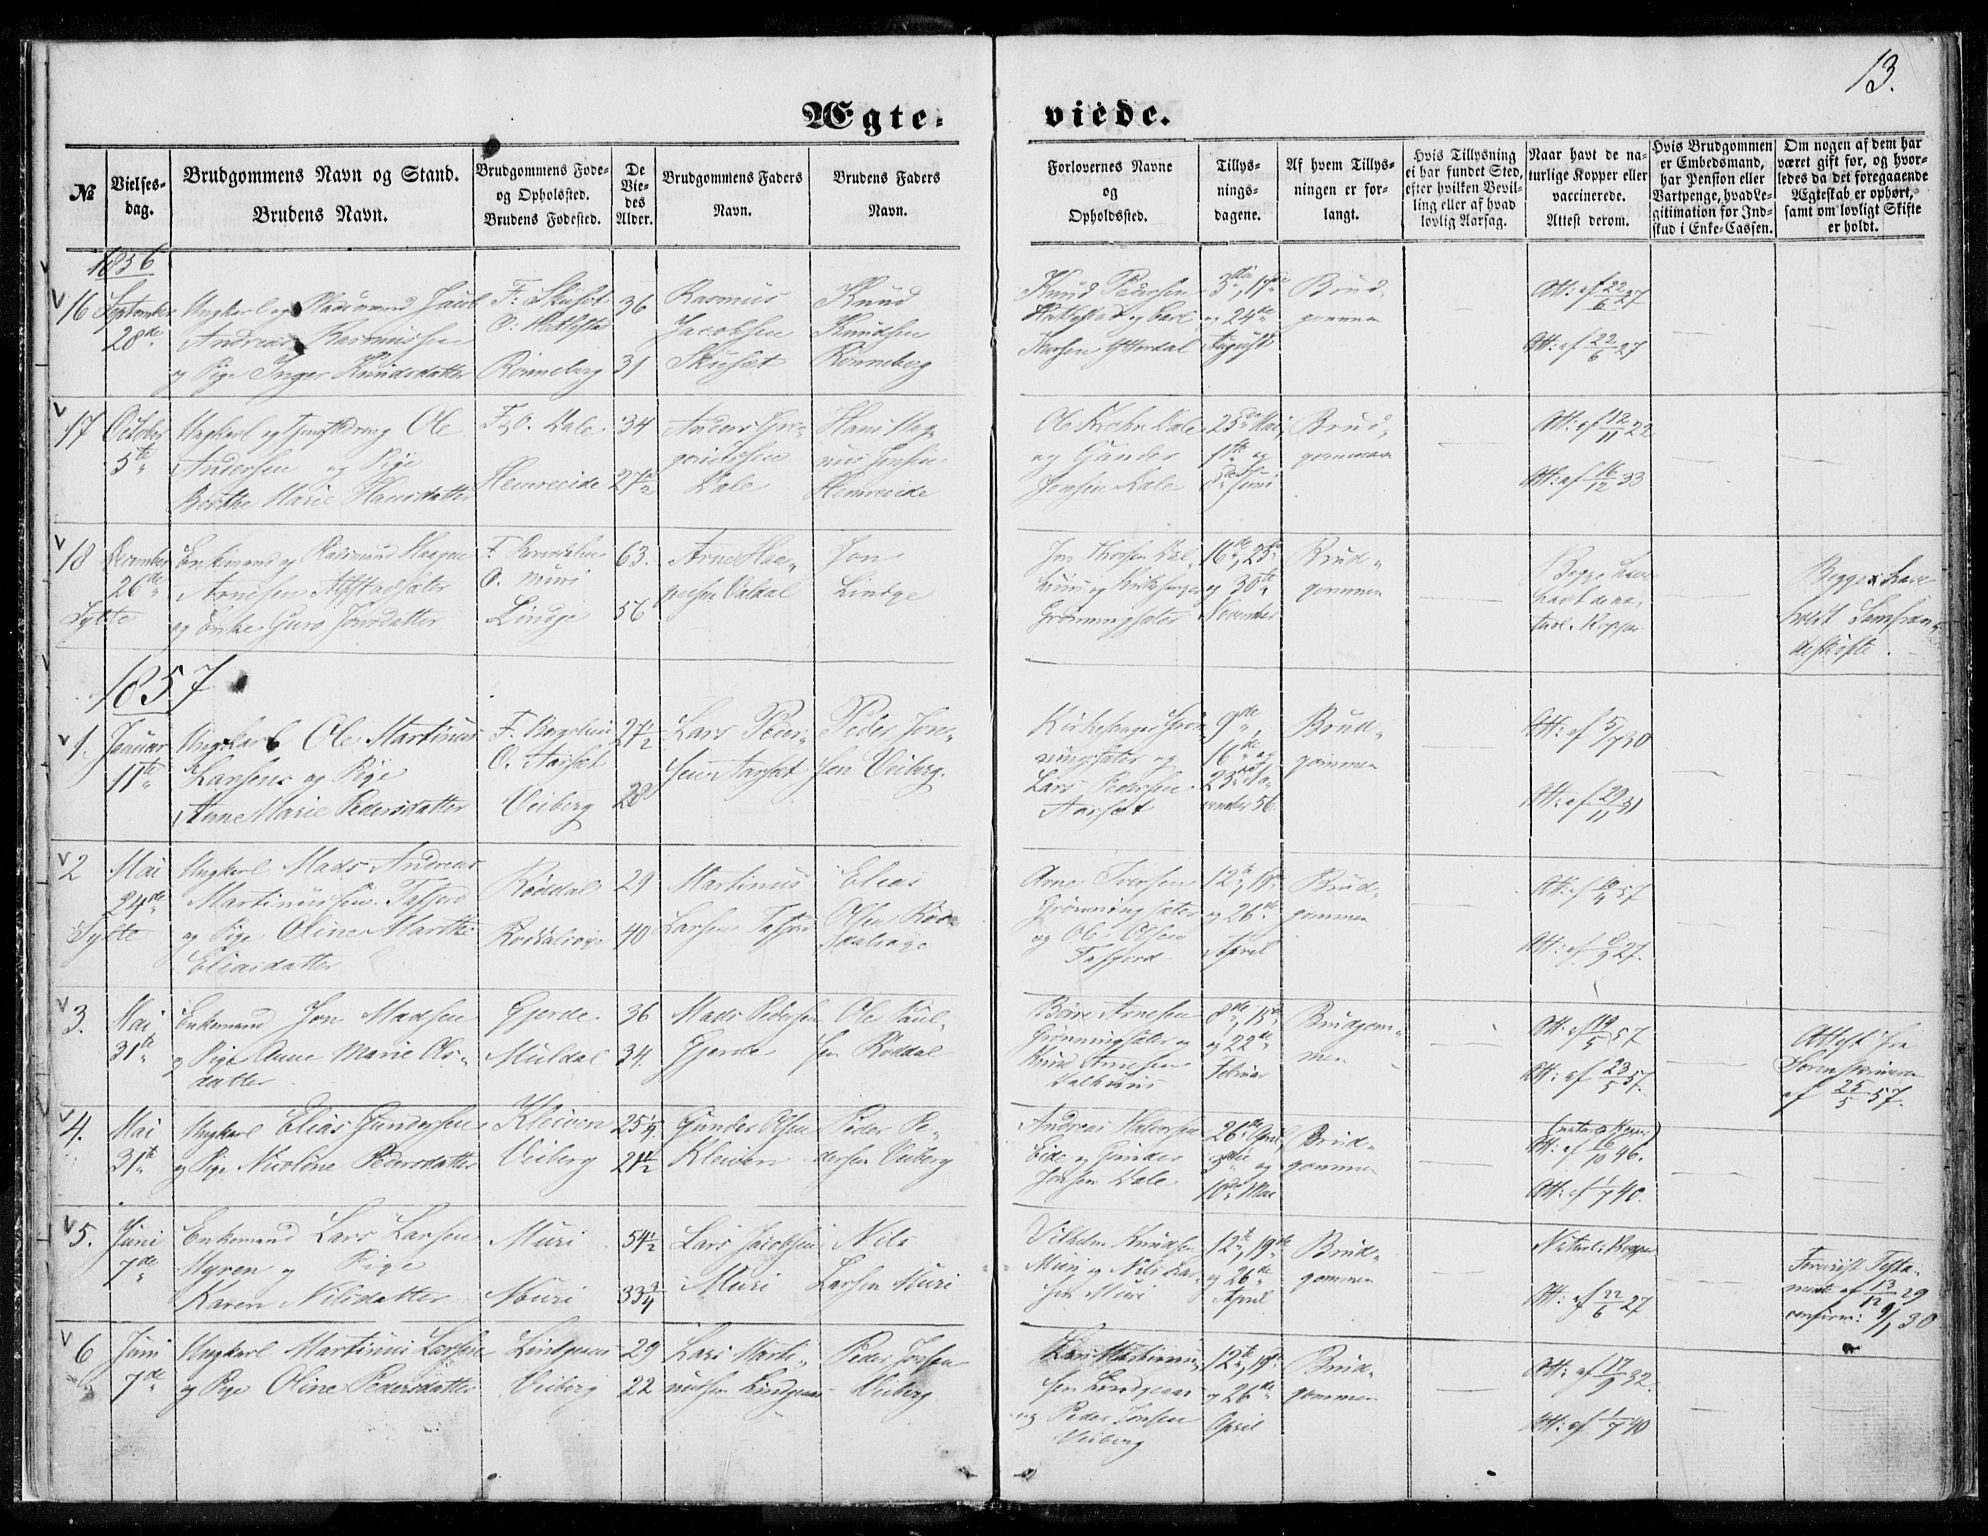 13.
Ægte- viede.
№
Vielses-
dag.
Brudgommens Navn og Stand.
Brudens Navn.
Brudgommens Føde-
og Opholdsted.
Brudens Fødested.
De
Vie-
des
Alder.
Brudgommens Faders
Navn.
Brudens Faders
Navn.
Forlovernes Navne
og
Opholdssted.
Tillys-
nings-
dagene.
Af hvem Tillys-
ningen er for-
langt.
Hvis Tillysning
ei har fundet Sted,
efter hvilken Bevil-
ling eller af hvad
lovlig Aarsag.
Naar havt de na-
turlige Kopper eller
vaccinerede.
Attest derom.
Hvis Brudgommen
er Embedsmand,
har Pension eller
Vartpenge, hvad Le-
gitimation for Ind-
skud i Enke-Cassen.
Om nogen af dem har
været gift før, og hvor-
ledes da det foregaaende
Ægteskab er ophørt,
samt om lovligt Skifte
er holdt.
1856
16 September
28de
Ungkarl og Jacob
Andreas Rasmussen
og Pige Inger Knudsdatter
F: Skuset
Rønneberg
36
31
Rasmus
Jacobsen
Skuset
Knud
Knudsen
Rønneberg
Knud Pedersen
3die, 17de
og 24de
August
Brud-
gommen
Att: af 22/6 27
Att: af 22/6 27
17 October
5te
Ungkarl og Ole
Andersen og Pige
Berthe Marie Hansdatter
F. O. Dale
Hemreeide
34
27½
Anders
Dale
Hans Mag-
nus Jensen
Hemreeide
Ole Dale
og Gunder
Jensen Dale
25de Mai,
1ste og
Juni
Brud-
gommen
Att: af 12/11 22
Att: af 16/12 33
18 December
26de
Sylte
Enkemand og Haagen
Arnesen
og Enke Guro Jonsdatter
O. Muri
Linge
63.
56
Arne Haa-
gensen Valdal
Jon
Linge
Grønningsæter
16de, 23de
og 30te
November
Brud-
gommen
Begge have
havt de na-
turl. Kopper
Begge have
holdt Samfræn-
deskifte.
1857
1. Januar
11te
Ungkarl Ole Martinus
Larsen og Pige
Anne Marie Pedersdatter
O. Aarset
Veiberg
27½
28
Lars Peder-
sen Aarset
Peder Jon-
sen Veiberg.
Kirkesanger Grøn-
ningsæter og
Lars Pedersen
Aarset
9de,
16de og
23de No-
vember 56
Brud-
gommen
Att: af 5/7 30
Att: af 29/11 31
2 Mai
24de
Sylte
Ungkarl Mads Andreas
Martinussen Tafjord
og Pige Oline Marthe
Eliasdatter
Røddal
29
40
Martinus
Larsen Tafjord
Elias
Olsen
Arne Iversen
Grønningsæter
og Ole Olsen
Tafjord
12te, 19de
og 26de
April
Brud-
gommen
Att: af 57
Att: af 27.
3. Mai
31te
Enkemand Jon Madsen
og Pige Anne Marie Ols-
datter
Gjerde
Muldal
36
34.
Mads Pedersen
Gjerde
Ole Paul-
sen Røddal
Børre Arnesen
Grønningsæter og
Knud Arnesen
8de, 15de
og 22de
Februar
Brudgom-
men
Att: af 19/5 57
Att: af 23/5 57.
Attest fra
af 25/5 57.
4. Mai
31te
Ungkarl Elias Gundersen
og Pige Nicoline Pedersdatter
Kleiven
Veiberg
25¼
21½
Gunder Olsen
Kleiven
Peder Pe-
dersen Veiberg
Andreas Halvorsen
Eide og Gunder
Jensen Dale
26de April,
3die og
10de Mai
Brud-
gommen
Att: af 6/10 96.
Att: af 1/7 40.
5. Juni
7de
Enkemand Lars Larsen
Myren og Pige
Karen Nilsdatter
Muri
Muri
54½
33¾
Lars Jacobsen
Muri
Nils
Larsen Muri
Vilhelm Knudsen
Muri og Nils Lar-
sen Muri
12te, 19de
og 26de
April
Brud-
gommen
Naturl: Kopper
Att: af 22/6 27
Testa-
mente af 13/12 29
confirm: 9/1 30
6 Juni
7de
Ungkarl Martinus Larsen
og Pige Oline Pedersdatter
Veiberg
29
22
Lars Marti-
nussen
Peder Jonsen
Veiberg
Lars Martinus-
sen
og Peder Jonsen
Veiberg
12te, 19de
og 26de
April
Brud-
gommen
Att: af 17/9 32.
Att: af 1/7 40